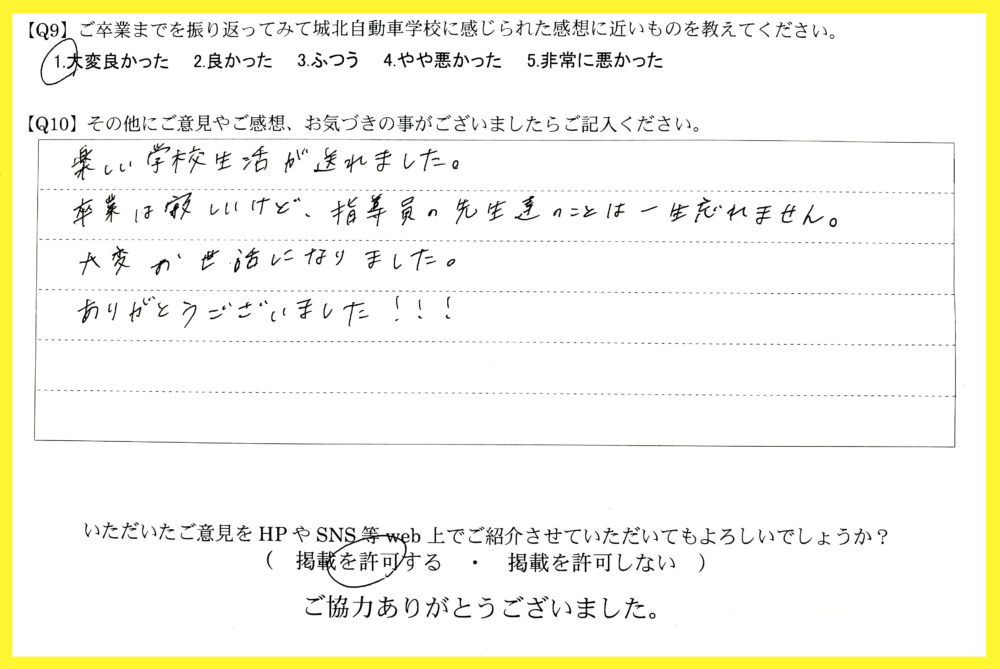 【Q9】ご卒業までを振り返ってみて城北自動車学校に感じられた感想に近いものを教えてください。
1.大変良かった 2.良かった 3.ふつう 4.やや悪かった 5.非常に悪かった
【Q10】その他にご意見やご感想、お気づきの事がございましたらご記入ください。
楽しい学校生活が送れました。
卒業は寂しいけど、指導員の先生達のことは一生忘れません。
大変お世話になりました。
ありがとうございました!!!
いただいたご意見をHPやSNS等web上でご紹介させていただいてもよろしいでしょうか?
( 掲載を許可する ・ 掲載を許可しない )
ご協力ありがとうございました。